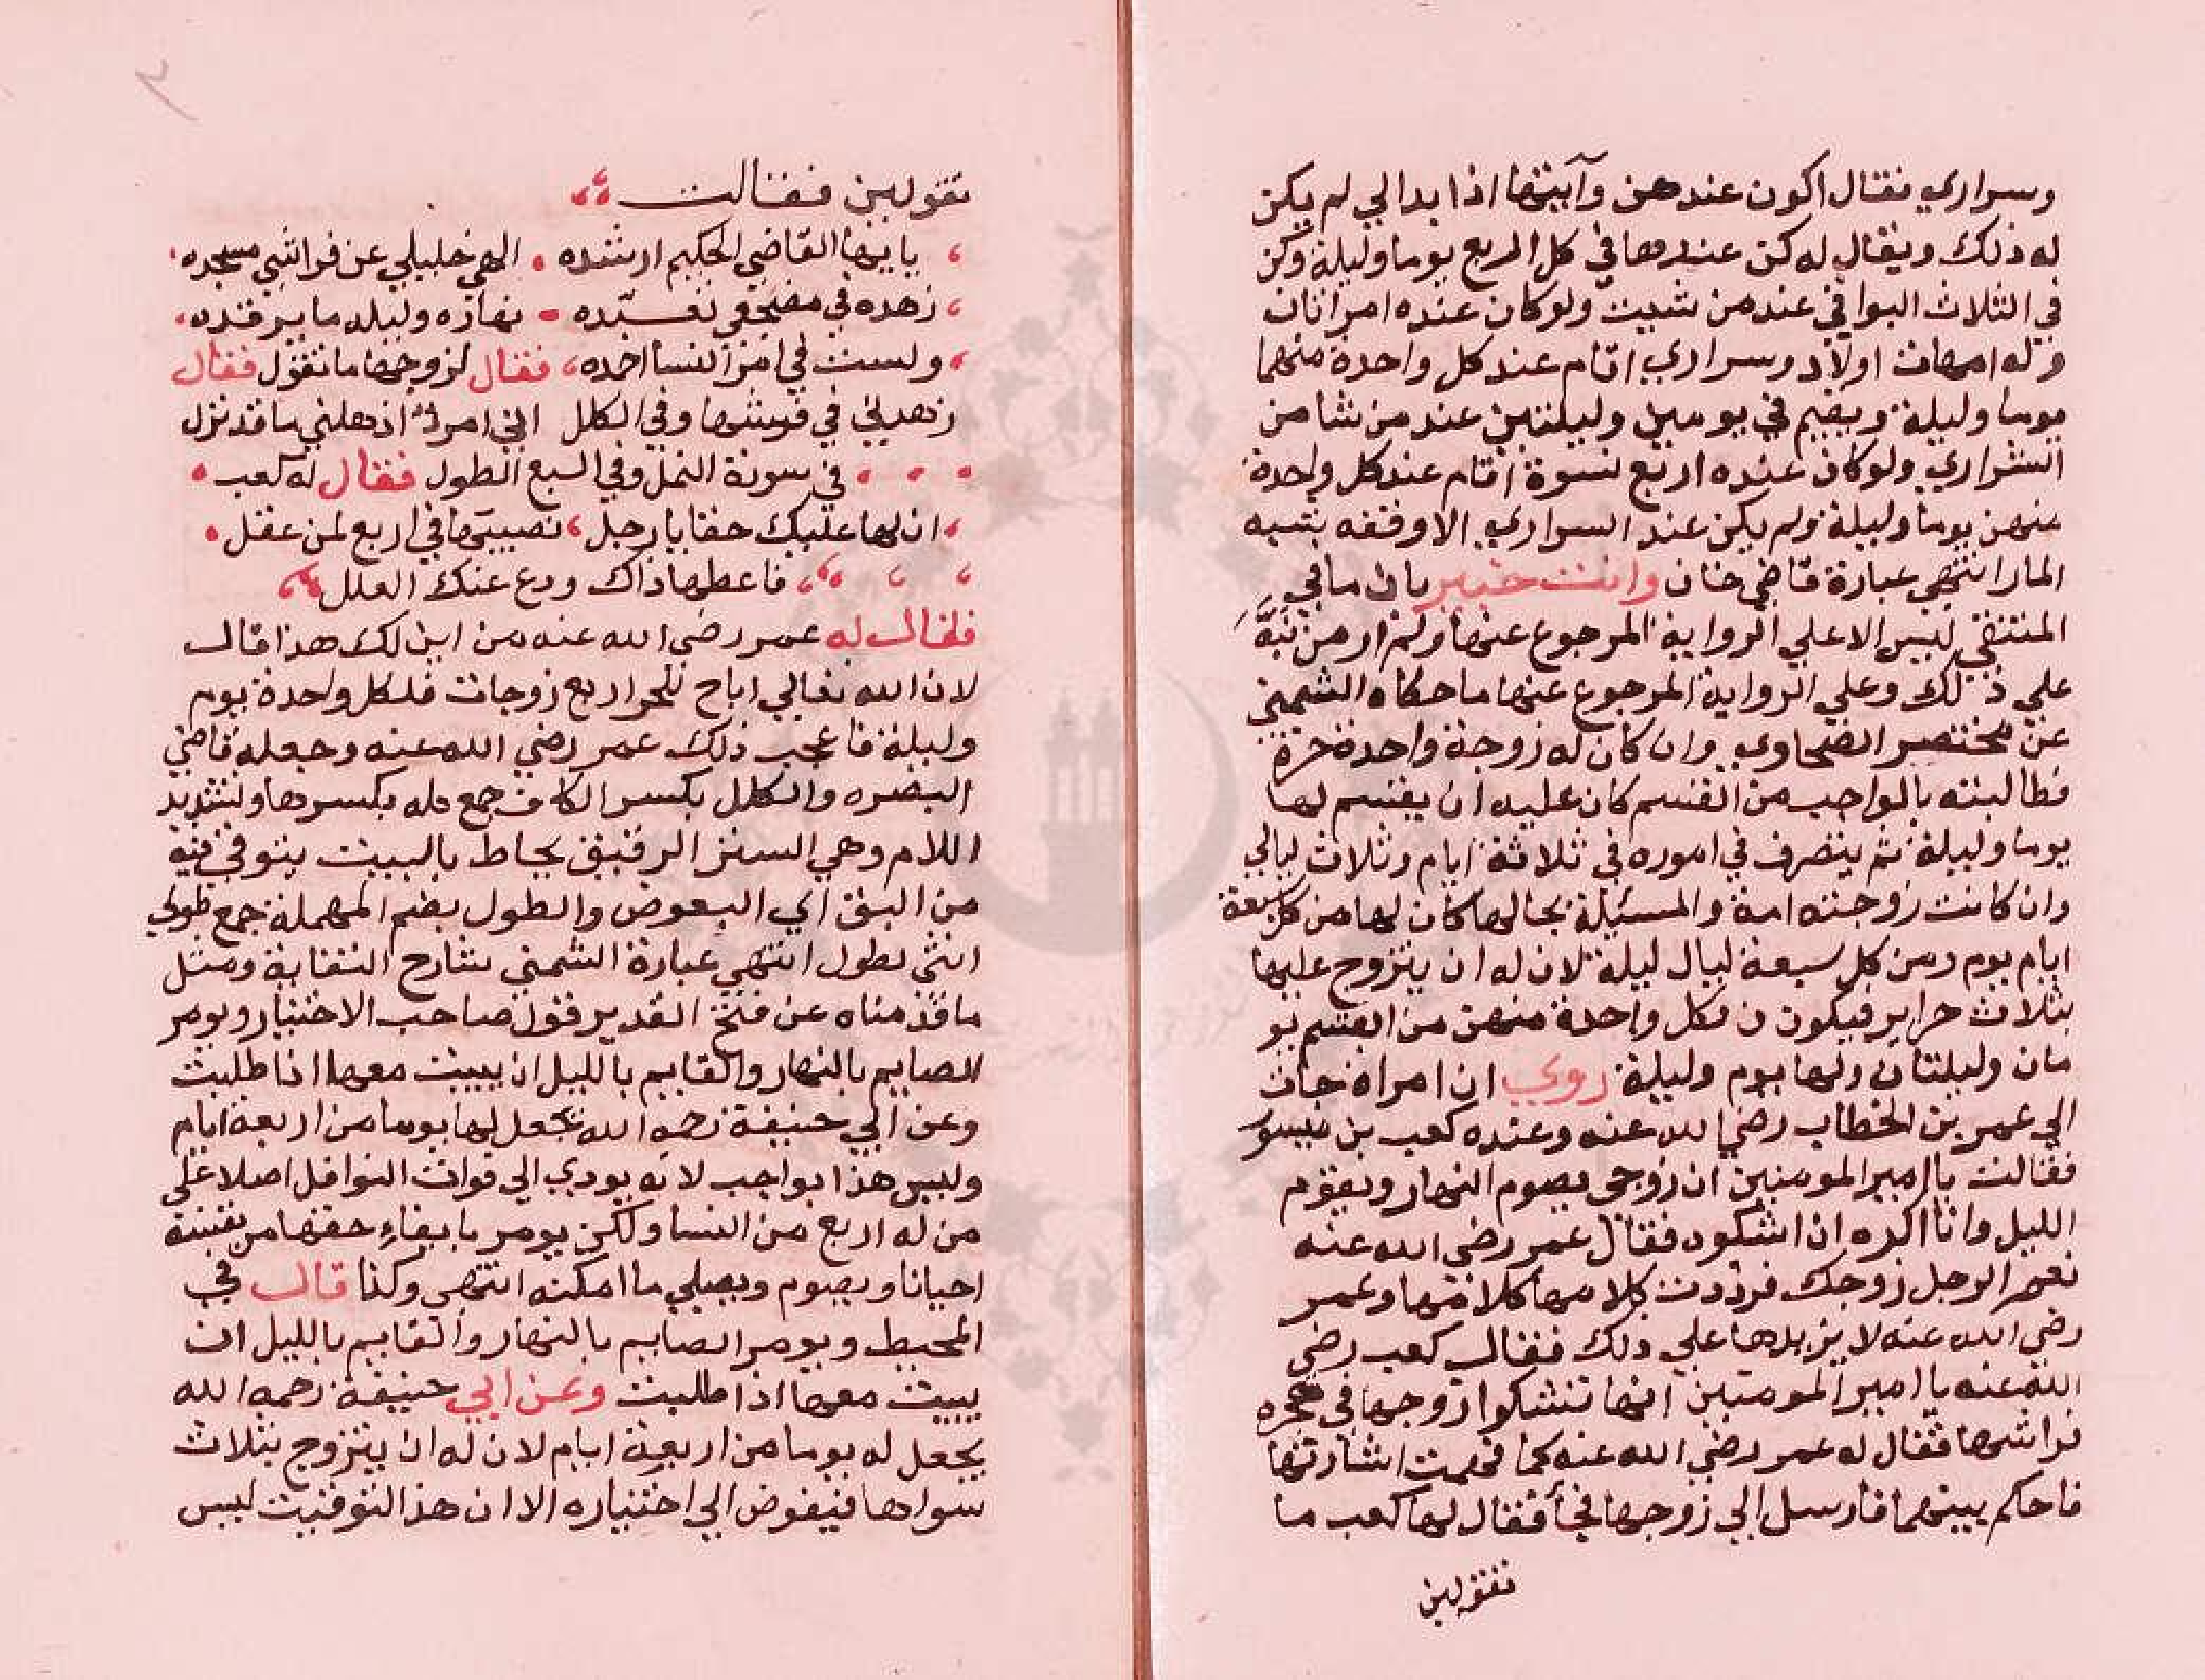 وسراري فقال اكون عندهن وآبيتها اذا بدالي لم يكن
له ذلك ويقال له كن عندها في كل اربع يوما وليلة وكن
في الثلاث البواقي عند من شيت ولو كان عنده امراتان
وله امهات اولاد وسراري اقام عند كل واحدة منهما
يوما وليلة ويقيم في يومين وليلتين عند من شا من
السراري ولو كان عنده اربع نسوة اقام عند كل واحدة
منهن يوما وليلة ولم يكن عند السراري الا وقفه بشبه
المار انتهى عبارة قاضي خان وانت خبير بان ما في
المنتقي ليس الا علي الرواية المرجوع عنها ولم ار من نبَّه
علي ذلك وعلي الرواية المرجوع عنها ما حكاه الشمني
عن مختصر الطحاوي وان كان له زوجة واحدة حرة
فطالبته بالواجب من القسم كان عليه ان يقسم لها
يوما وليلة ثم يتصرف في اموره في ثلاثة ايام وثلاث ليالي
وان كانت زوجته امة والمسئلة بحالها كان لها من كل سبعة
ايام يوم ومن كل سبعة ليال ليلة لان له ان يتزوج عليها
بثلاث حراير فيكون ن لكل واحدة منهن من القسم يو
مان وليلتان ولها يوم وليلة روي ان امراة جات
الي عمر بن الخطاب رضي الله عنه وعنده كعب بن ميسور
فقالت يا امير المومنين ان زوجي يصوم النهار ويقوم
الليل وانا اكره ان اشكوه فقال عمر رضي الله عنه
نعم الرجل زوجك فرددت كلامها كلامها وعمر
رضي الله عنه لا يزيدها علي ذلك فقال كعب رضي
الله عنه يا امير المومنين انها تشكوا زوجها في هجره
فراشها فقال له عمر رضي الله عنه كما فهمت اشارتها
فاحكم بينهما فارسل الي زوجها فجأ فقال لها كعب ما
تقولين
تقولين فقالت
يا ايها القاضي الحكيم ارشده الهي خليلي عن فراشي مسجده
زهده في مضجعي تعبّده نهاره وليله ما يرقده
ولست في امر النسا احمده فقال لزوجها ما تقول فقال
زهدني في فرشها وفي الكلل اني امرؤ اذهلني ما قد نزل
في سورة النمل وفي السبع الطول فقال له كعب
ان لها عليك حقا يا رجل نصيبها في اربع لمن عقل
فاعطها ذاك ودع عنك العلل
فقال له عمر رضي الله عنه من اين لك هذا قال
لان الله تعالي اباح للحر اربع زوجات فلكل واحدة يوم
وليلة فاعجب ذلك عمر رضي الله عنه وجعله قاضي
البصره والكلل بكسر الكاف جمع كله بكسرها وتشديد
اللام وهي الستر الرقيق يخاط بالبيت يتوقي فيه
من البق اي البعوض والطول بضم المهملة جمع طولي
انثي اطول انتهي عبارة الشمني شارح النقاية ومثل
ما قدمناه عن فتح القدير قول صاحب الاختيار ويومر
الصايم بالنهار والقايم بالليل ان يبيت معها اذا طلبت
وعن ابي حنيفة رحمه الله يجعل لها يوما من اربعة ايام
وليس هذا بواجب لانه يودي الي فوات النوافل اصلا علي
من له اربع من النسا ولكن يومر بايفاء حقها من نفسه
احيانا ويصوم ويصلي ما امكنه انتهى وكذا قال في
المحيط ويومر الصايم بالنهار والقايم بالليل ان
يبيت معها اذا طلبت وعن ابي حنيفة رحمه الله
يجعل له يوما من اربعة ايام لان له ان يتزوج بثلاث
سواها فيفوض الي اختياره الا ان هذا التوقيت ليس